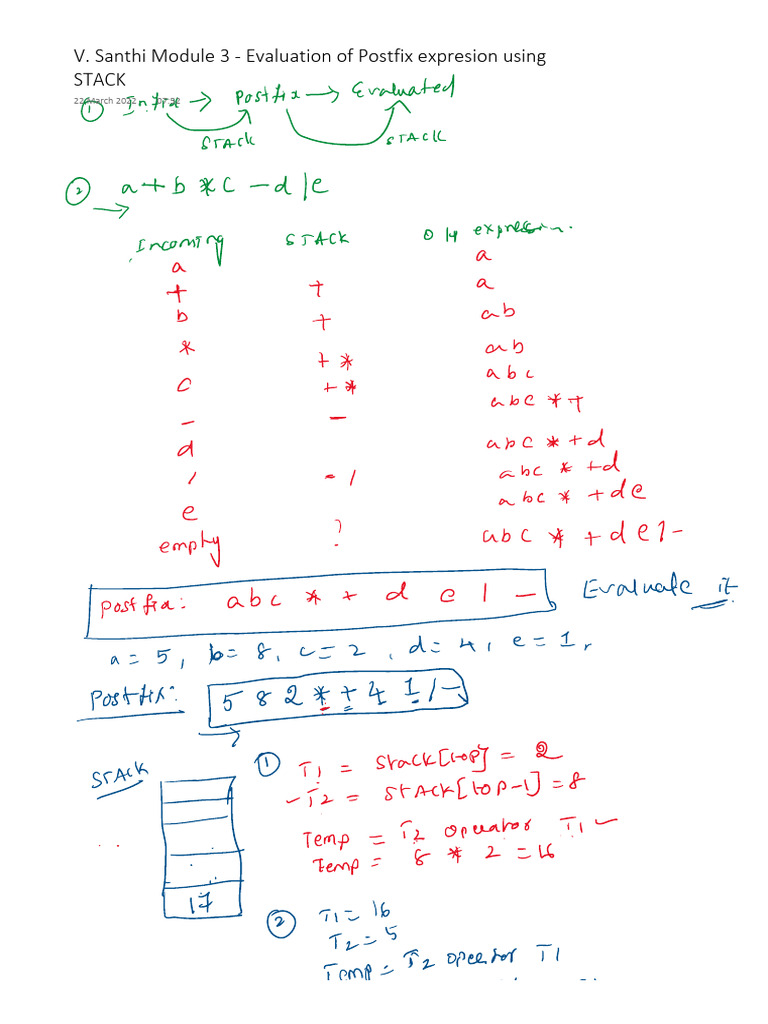 V. Santhi Module 3 - Evaluation of Postfix expresion using
STACK
22 March 2022
① Infix → Postfix → Evaluated
STACK STACK
② a + b * c - d / e
Incoming STACK O/p expression.
a a
+ + a
b + ab
* + * ab
c + * abc
- - abc * +
d abc * + d
/ - / abc * + d
e abc * + de
empty ? abc * + de / -
Postfix: abc * + d e / - Evaluate it
a = 5, b = 8, c = 2, d = 4, e = 1,
Postfix: 5 8 2 * + 4 1 / -
STACK
① T1 = Stack[top] = 2
- T2 = STACK[top-1] = 8
Temp = T2 operator T1
Temp = 8 * 2 = 16
17
② T1 = 16
T2 = 5
Temp = T2 operator T1